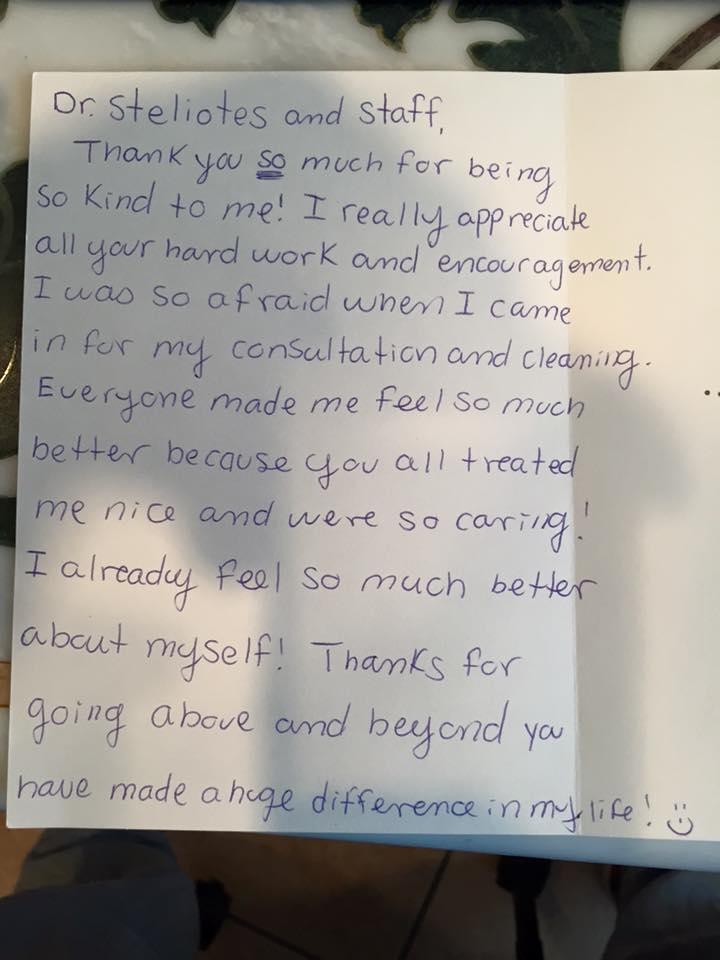 Dr. Steliotes and staff,
Thank you so much for being
so kind to me! I really appreciate
all your hard work and encouragement.
I was so afraid when I came
in for my consultation and cleaning.
Everyone made me feel so much
better because you all treated
me nice and were so caring!
I already feel so much better
about myself! Thanks for
going above and beyond you
have made a huge difference in my life! :)